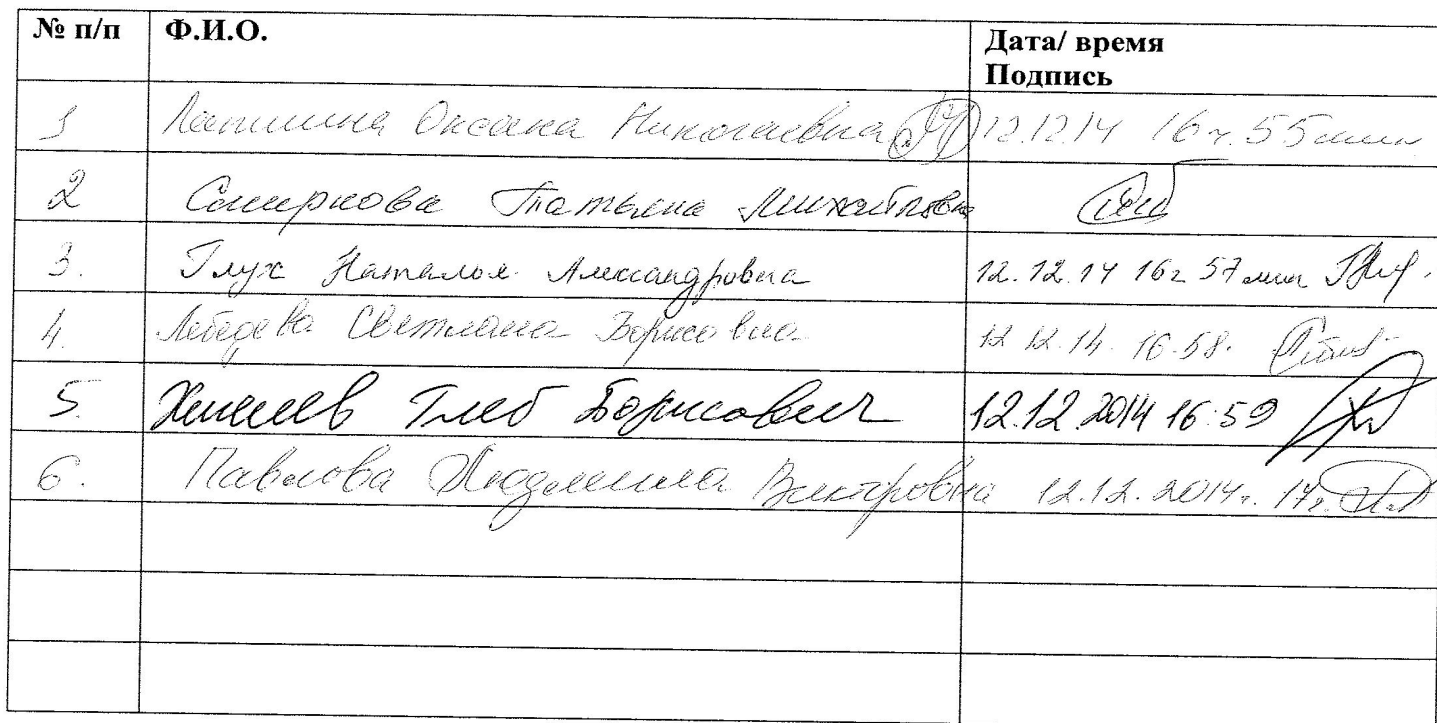 № п/п Ф.И.О. Дата/ время
Подпись
1 Лапшина Оксана Николаевна 12.12.14 16ч. 55 мин
2 Смирнова Татьяна Михайловна
3. Глух Наталья Александровна 12.12.14 16ч 57 мин
4. Лебедева Светлана Борисовна 12.12.14. 16.58.
5. Глеб Борисович 12.12.2014 16:59
6. Павлова Людмила Викторовна 12.12.2014г. 17ч.